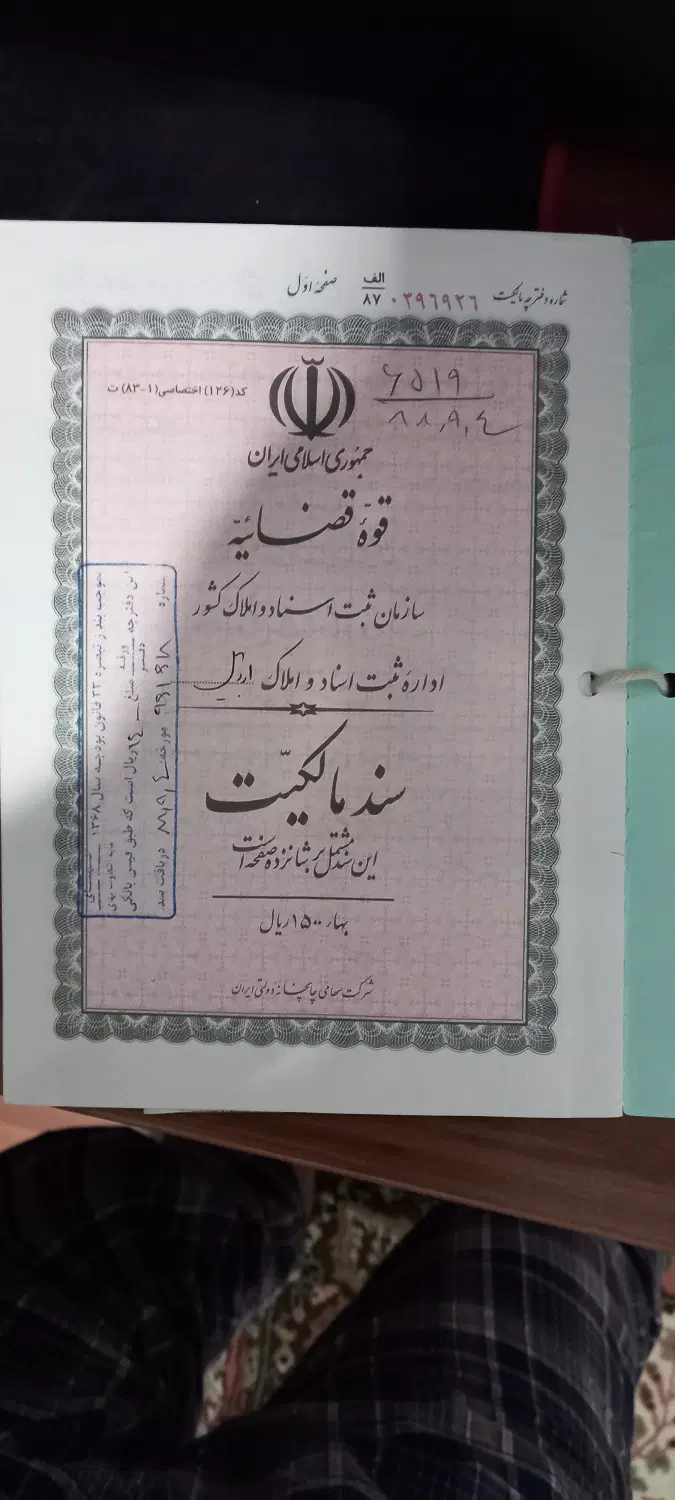 شماره دفترچه مالکیت ۰۳۹۶۹۲۶ الف/۸۷ صفحهٔ اوّل
۶۵۱۹
۸۸٫۹٫۴
کد(۱۲۶) اختصاصی(۱-۸۳) ت
جمهوری اسلامی ایران
قوّهٔ قضائیّه
سازمان ثبت اسناد و املاک کشور
ادارهٔ ثبت اسناد و املاک اردبیل
سند مالکیّت
این سند مشتمل بر شانزده صفحه است
بهاء ۱۵۰۰ ریال
شرکت سهامی چاپخانه دولتی ایران
بموجب بند ز تبصره ۲۲ قانون بودجه سال ۱۳۶۸
این دفترچه
ورقه
دفتر
مبلغ
ریال است که طبق فیش بانکی
شماره
مورخه ۸۸٫۹٫۴ دریافت شد